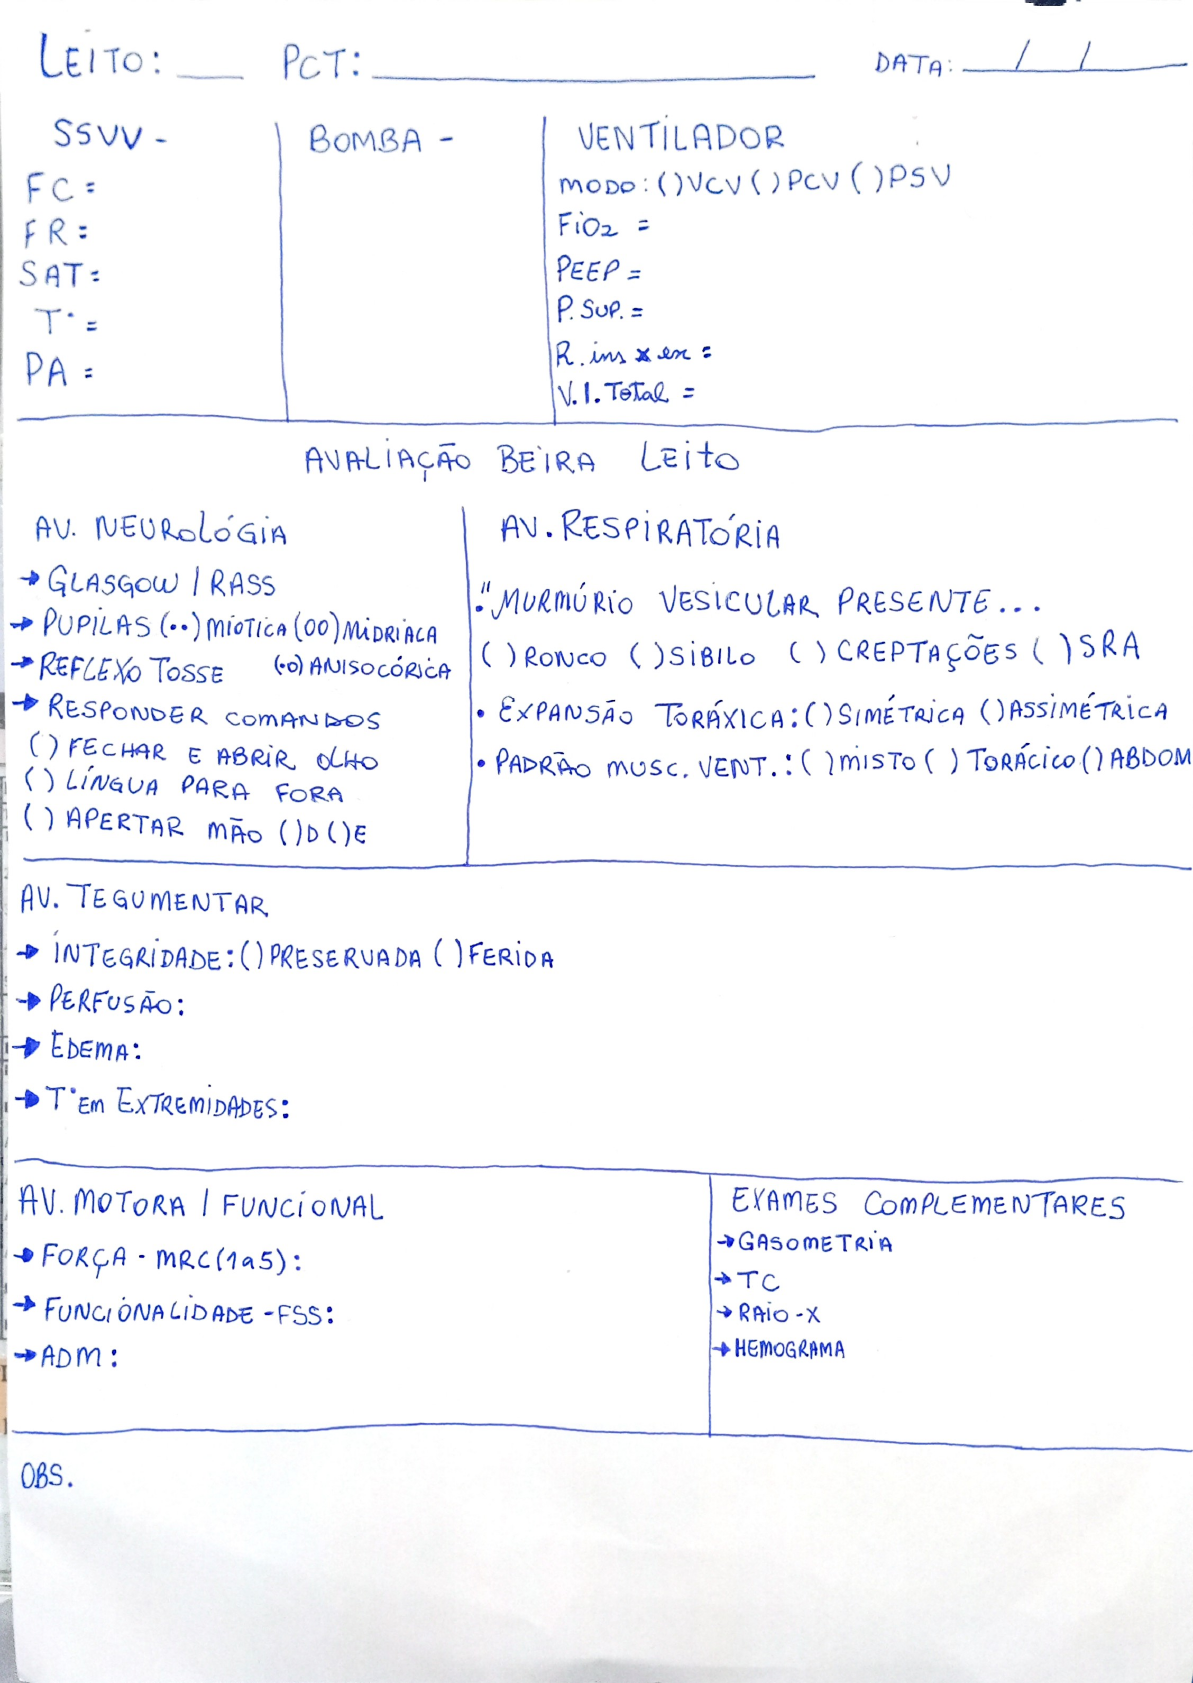 LEITO: ___ PCT: ______________ DATA: __/__/__
SSVV -
FC =
FR =
SAT =
T° =
PA =
BOMBA -
VENTILADOR
MODO: ( ) VCV ( ) PCV ( ) PSV
FiO2 =
PEEP =
P. SUP. =
R. ins x ex =
V.I. Total =
AVALIAÇÃO BEIRA LEITO
AV. NEUROLÓGIA
→ GLASGOW / RASS
→ PUPILAS (••) MIOTICA (OO) MIDRIACA
→ REFLEXO TOSSE (•O) ANISOCÓRICA
→ RESPONDER COMANDOS
( ) FECHAR E ABRIR OLHO
( ) LÍNGUA PARA FORA
( ) APERTAR MÃO ( ) D ( ) E
AV. RESPIRATÓRIA
• "MURMÚRIO VESICULAR PRESENTE...
( ) RONCO ( ) SIBILO ( ) CREPTAÇÕES ( ) SRA
• EXPANSÃO TORÁXICA: ( ) SIMÉTRICA ( ) ASSIMÉTRICA
• PADRÃO MUSC. VENT.: ( ) MISTO ( ) TORÁCICO ( ) ABDOM
AV. TEGUMENTAR
→ INTEGRIDADE: ( ) PRESERVADA ( ) FERIDA
→ PERFUSÃO:
→ EDEMA:
→ T° EM EXTREMIDADES:
AV. MOTORA / FUNCIONAL
→ FORÇA - MRC (1 a 5):
→ FUNCIONALIDADE - FSS:
→ ADM:
EXAMES COMPLEMENTARES
→ GASOMETRIA
→ TC
→ RAIO-X
→ HEMOGRAMA
OBS.